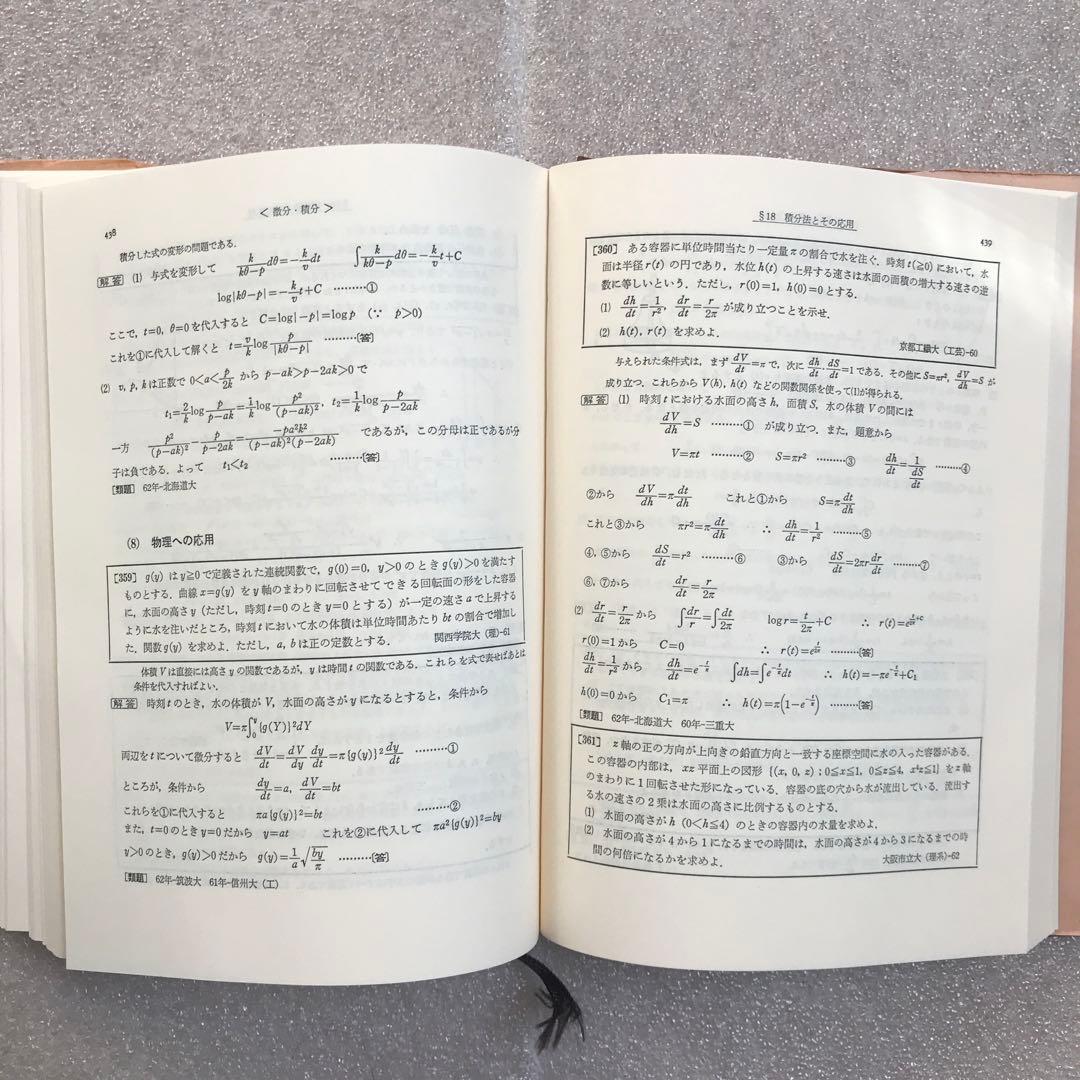 438
< 微分・積分 >
積分した式の変形の問題である.
[解答] (1) 与式を変形して k/(kθ−p) dθ=−k/v dt ∫k/(kθ−p) dθ=−k/v t+C
log|kθ−p|=−k/v t+C ………①
ここで, t=0, θ=0 を代入すると C=log|−p|=log p (∵ p>0)
これを①に代入して解くと t=v/k log p/|kθ−p| ………[答]
(2) v, p, k は正数で 0<a<p/2k から p−ak>p−2ak>0 で
t₁=2/k log p/(p−ak)=1/k log p²/(p−ak)², t₂=1/k log p/(p−2ak)
一方 p²/(p−ak)²−p/(p−2ak)=−pa²k²/((p−ak)²(p−2ak)) であるが, この分母は正であるが分
子は負である. よって t₁<t₂ ………[答]
[類題] 62年-北海道大
(8) 物理への応用
[359] g(y) は y≧0 で定義された連続関数で, g(0)=0, y>0 のとき g(y)>0 を満たす
ものとする. 曲線 x=g(y) を y 軸のまわりに回転させてできる回転面の形をした容器
に, 水面の高さ y (ただし, 時刻 t=0 のとき y=0 とする) が一定の速さ a で上昇する
ように水を注いだところ, 時刻 t において水の体積は単位時間あたり bt の割合で増加し
た. 関数 g(y) を求めよ. ただし, a, b は正の定数とする. 関西学院大 (理)-61
体積 V は直接には高さ y の関数であるが, y は時間 t の関数である. これらを式で表せばあとは
条件を代入すればよい.
[解答] 時刻 t のとき, 水の体積が V, 水面の高さが y になるとすると, 条件から
V=π∫₀^y {g(Y)}²dY
両辺を t について微分すると dV/dt=dV/dy dy/dt=π{g(y)}² dy/dt ………①
ところが, 条件から dy/dt=a, dV/dt=bt
これらを①に代入すると πa{g(y)}²=bt ………②
また, t=0 のとき y=0 だから y=at これを②に代入して πa²{g(y)}²=by
y>0 のとき, g(y)>0 だから g(y)=1/a √(by/π) ………[答]
[類題] 62年-筑波大 61年-信州大 (工)
§18 積分法とその応用
439
[360] ある容器に単位時間当たり一定量 π の割合で水を注ぐ. 時刻 t(≧0) において, 水
面は半径 r(t) の円であり, 水位 h(t) の上昇する速さは水面の面積の増大する速さの逆
数に等しいという. ただし, r(0)=1, h(0)=0 とする.
(1) dh/dt=1/r², dr/dt=r/2π が成り立つことを示せ.
(2) h(t), r(t) を求めよ.
京都工繊大 (工芸)-60
与えられた条件式は, まず dV/dt=π で, 次に dh/dt・dS/dt=1 である. その他に S=πr², dV/dh=S が
成り立つ. これらから V(h), h(t) などの関数関係を使って(1)が得られる.
[解答] (1) 時刻 t における水面の高さ h, 面積 S, 水の体積 V の間には
dV/dh=S ………① が成り立つ. また, 題意から
V=πt ………② S=πr² ………③ dh/dt=1/(dS/dt) ………④
②から dV/dh=π dt/dh これと①から S=π dt/dh
これと③から πr²=π dt/dh ∴ dh/dt=1/r² ………⑤
④, ⑤から dS/dt=r² ………⑥ ③から dS/dt=2πr dr/dt ………⑦
⑥, ⑦から dr/dt=r/2π
(2) dr/dt=r/2π から ∫dr/r=∫dt/2π log r=t/2π+C ∴ r(t)=e^(t/2π+C)
r(0)=1 から C=0 ∴ r(t)=e^(t/2π) ………[答]
dh/dt=1/r² から dh/dt=e^(−t/π) ∫dh=∫e^(−t/π)dt ∴ h(t)=−πe^(−t/π)+C₁
h(0)=0 から C₁=π ∴ h(t)=π(1−e^(−t/π)) ………[答]
[類題] 62年-北海道大 60年-三重大
[361] z 軸の正の方向が上向きの鉛直方向と一致する座標空間に水の入った容器がある.
この容器の内部は, xz 平面上の図形 {(x, 0, z) ; 0≦x≦1, 0≦z≦4, x⁴z≦1} を z 軸
のまわりに1回転させた形になっている. 容器の底の穴から水が流出している. 流出す
る水の速さの2乗は水面の高さに比例するものとする.
(1) 水面の高さが h (0<h≦4) のときの容器内の水量を求めよ.
(2) 水面の高さが 4 から 1 になるまでの時間は, 水面の高さが 4 から 3 になるまでの時
間の何倍になるかを求めよ. 大阪市立大 (理系)-62